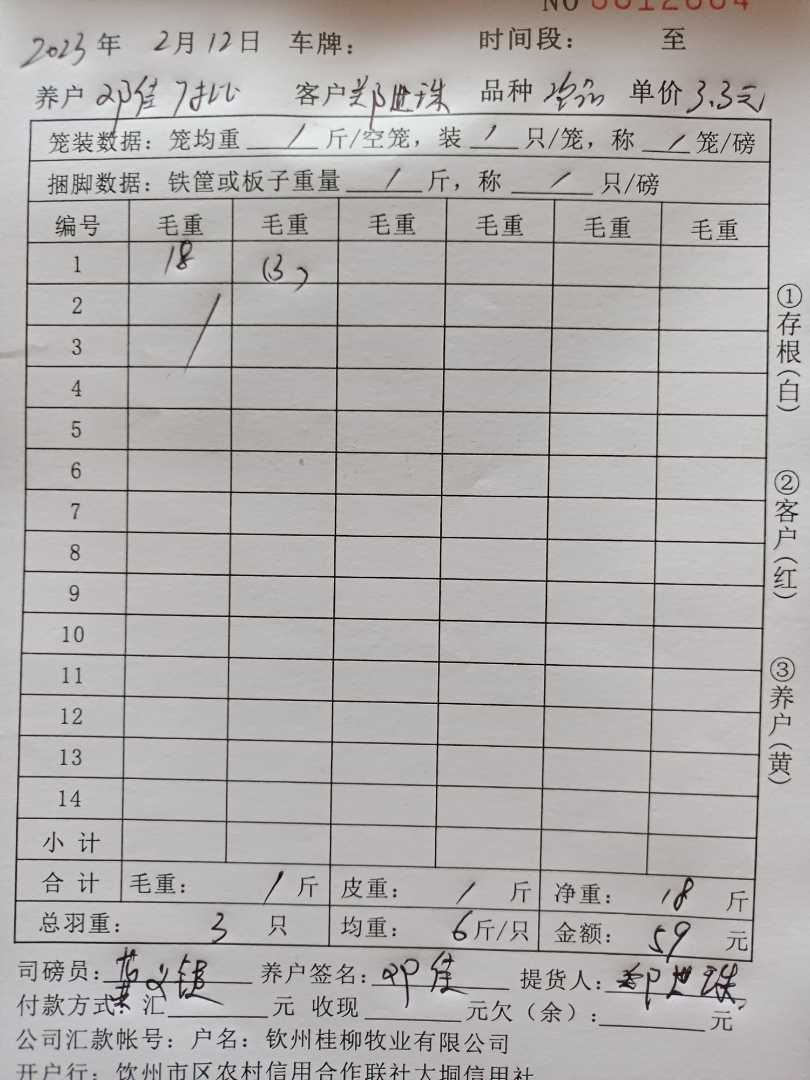 NO 0012664
2023年 2月12日 车牌： 时间段： 至
养户 邓佳 客户 郑世珠 品种 单价 3.3元
笼装数据：笼均重 / 斤/空笼，装 / 只/笼，称 / 笼/磅
捆脚数据：铁筐或板子重量 / 斤，称 / 只/磅
编号 毛重 毛重 毛重 毛重 毛重 毛重
1 18 (3)
2 /
3
4
5
6
7
8
9
10
11
12
13
14
小计
合计 毛重： / 斤 皮重： / 斤 净重： 18 斤
总羽重： 3 只 均重： 6斤/只 金额： 59 元
司磅员： 养户签名：邓佳 提货人：郑世珠
付款方式：汇 元 收现 元欠（余）： 元
公司汇款帐号：户名：钦州桂柳牧业有限公司
开户行：钦州市区农村信用合作联社大垌信用社
①存根（白）
②客户（红）
③养户（黄）